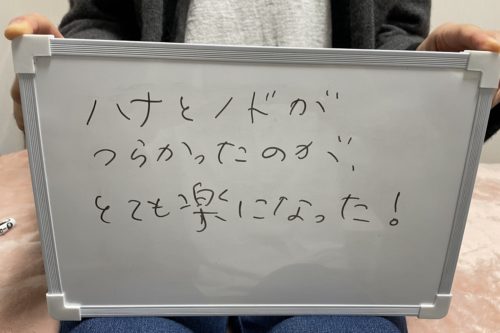 ハナとノドが
つらかったのが、
とても楽になった!